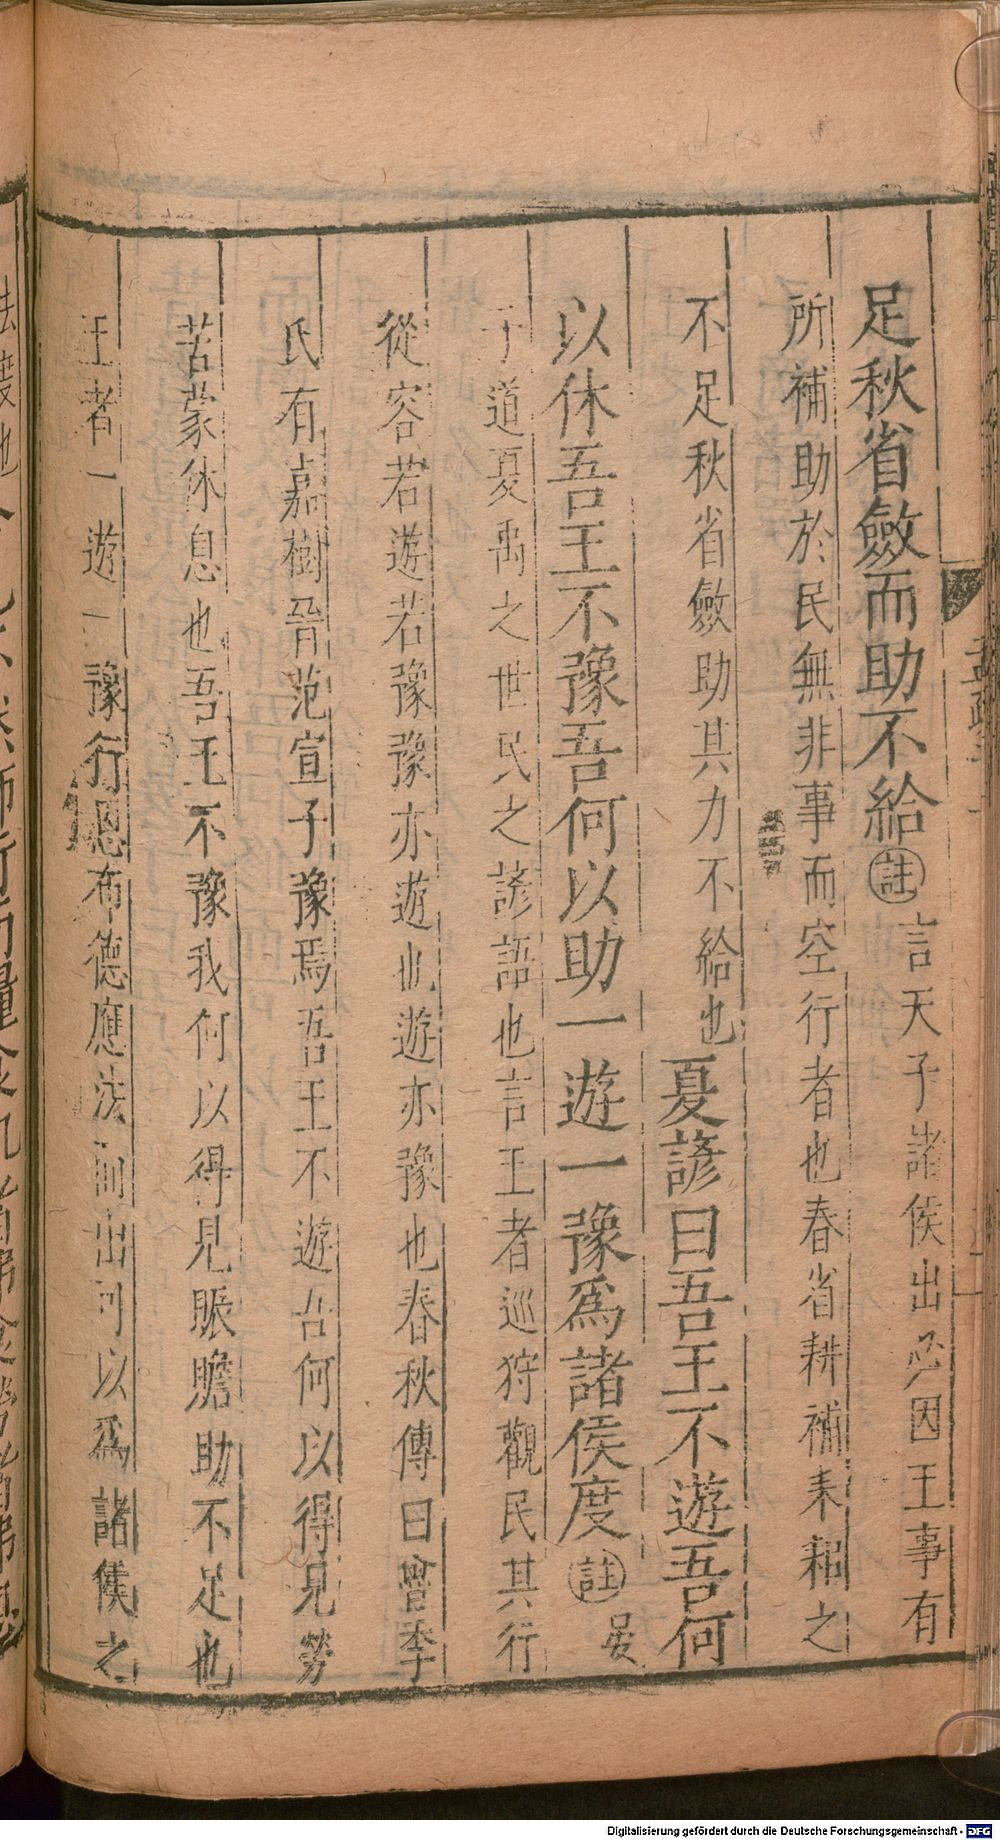 足秋省斂而助不給註言天子諸侯出必因王事有
所補助於民無非事而空行者也春省耕補耒耜之
不足秋省斂助其力不給也夏諺曰吾王不遊吾何
以休吾王不豫吾何以助一遊一豫爲諸侯度註晏
子道夏禹之世民之諺語也言王者巡狩觀民其行
從容若遊若豫豫亦遊也遊亦豫也春秋傳曰魯季
氏有嘉樹晉范宣子豫焉吾王不遊吾何以得見勞
苦蒙休息也吾王不豫我何以得見賑贍助不足也
王者一遊一豫行恩布德應法而出可以爲諸侯之
Digitalisierung gefördert durch die Deutsche Forschungsgemeinschaft - DFG